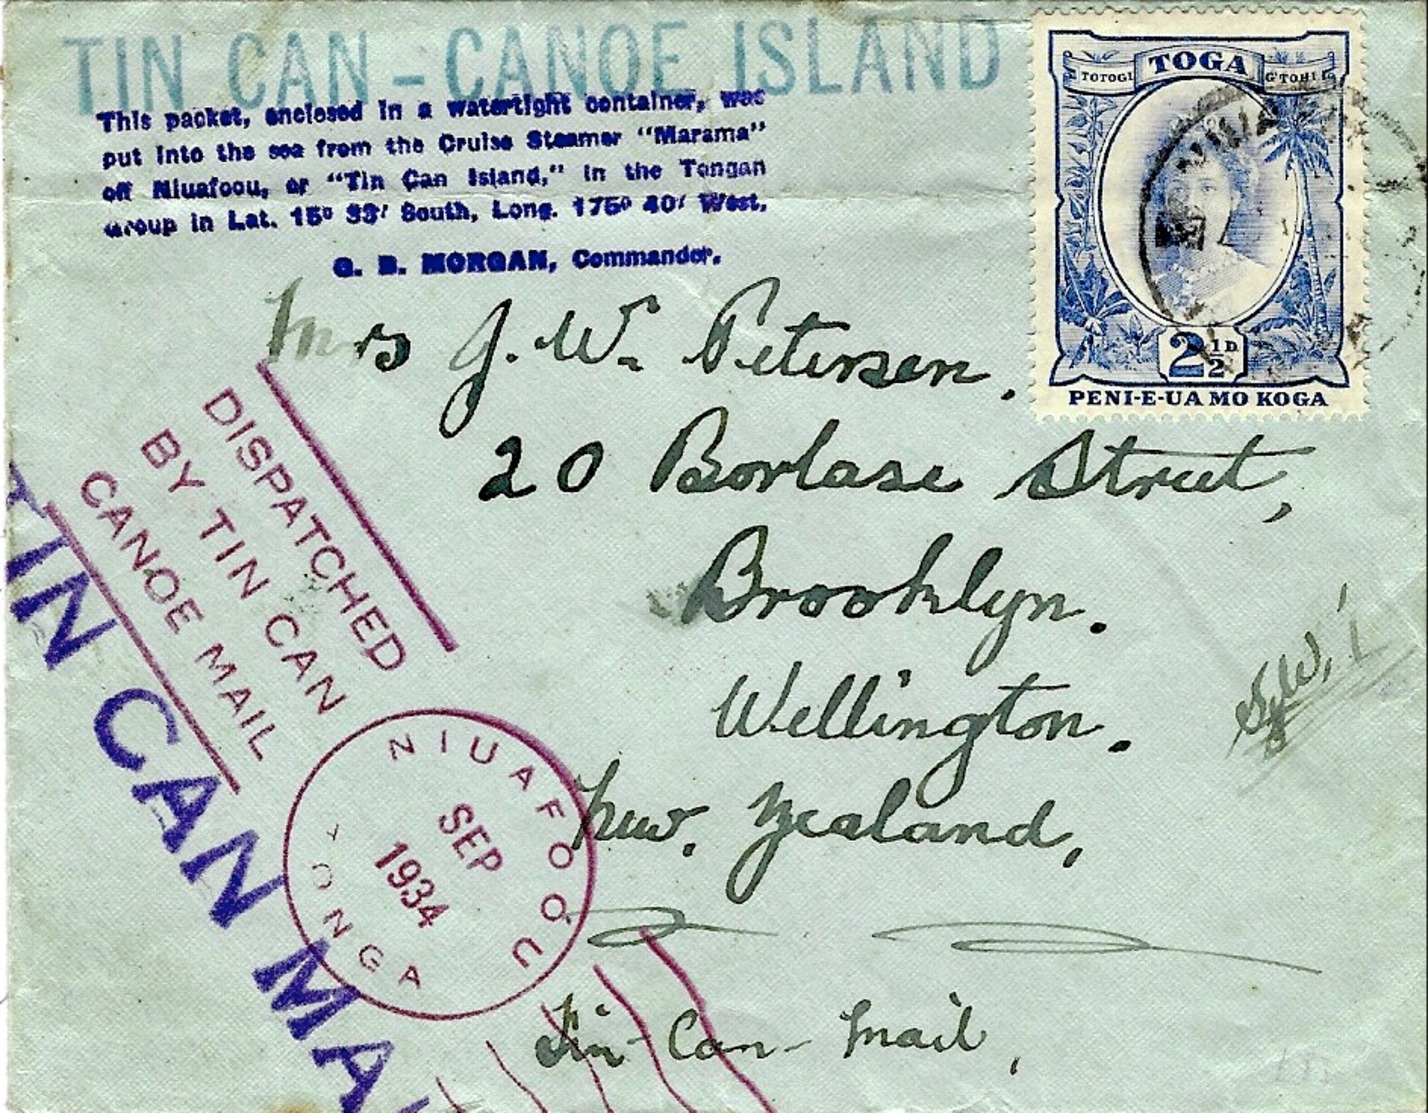 TIN CAN - CANOE ISLAND
This packet, enclosed in a watertight container, was
put into the sea from the Cruise Steamer "Marama"
off Niuafoou, or "Tin Can Island," in the Tongan
Group in Lat. 15° 33' South, Long. 175° 40' West.
G. B. MORGAN, Commander.
TOTOGI
TOGA
G'TOHI
2½D
PENI-E-UA MO KOGA
Mrs J. W. Petersen.
20 Borlase Street,
Brooklyn.
Wellington.
New. Zealand.
Tin-Can-Mail.
DISPATCHED
BY TIN CAN
CANOE MAIL
TIN CAN MA
NIUAFOOU
SEP
1934
TONGA